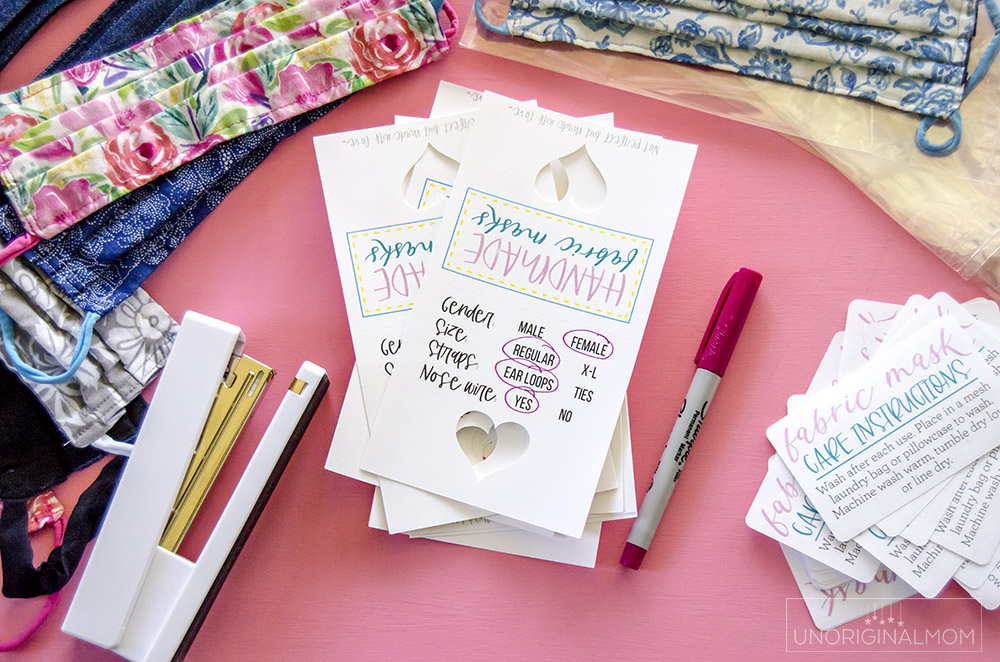 Not perfect but made with love...
HANDMADE
fabric masks
Gender: MALE FEMALE
Size: REGULAR X-L
Straps: EAR LOOPS TIES
Nose wire: YES NO
perfect but made with love...
ADE
masks
Ge
Sharpie
Permanent Marker
fabric mask
CARE INSTRUCTIONS
Wash after each use. Place in a mesh
laundry bag or pillowcase to wash.
Machine wash warm, tumble dry low
or line dry.
UNORIGINALMOM